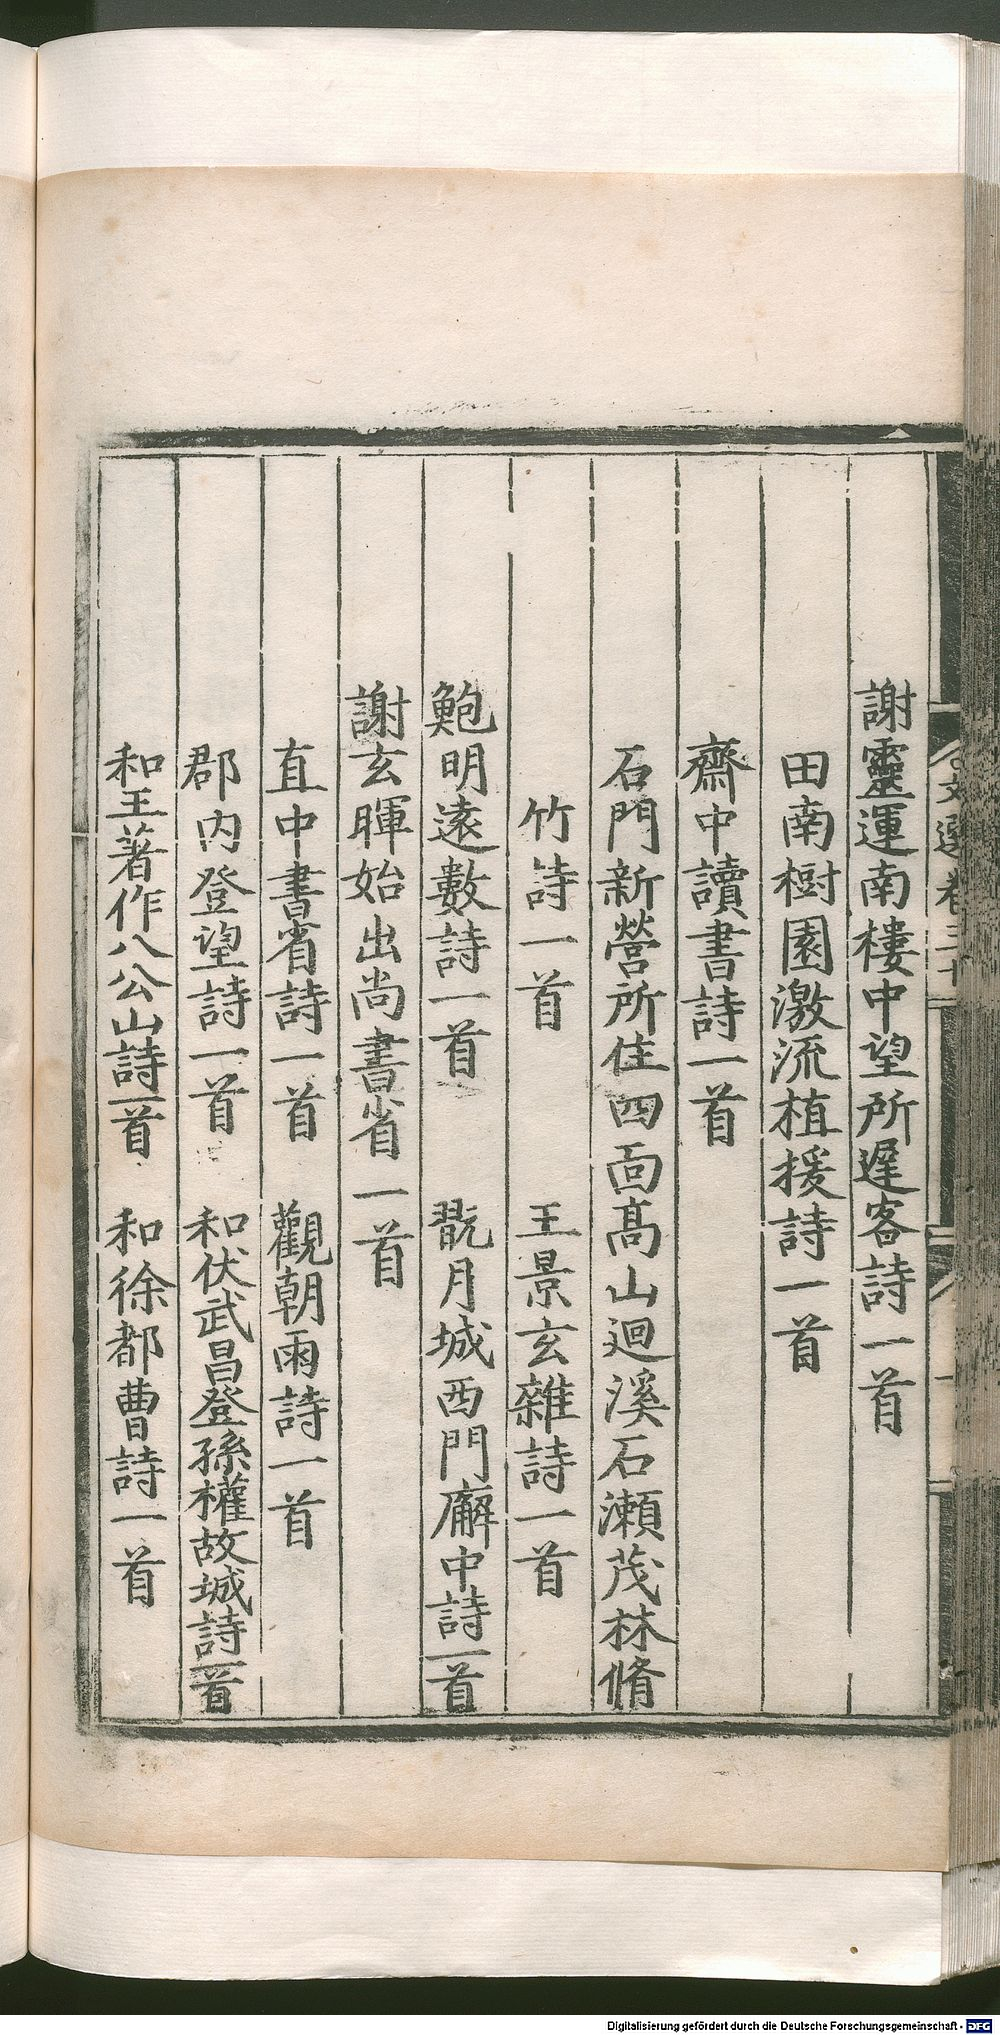 謝靈運南樓中望所遲客詩一首
田南樹園激流植援詩一首
齋中讀書詩一首
石門新營所住四面高山迴溪石瀨茂林脩
竹詩一首　王景玄雜詩一首
鮑明遠數詩一首　翫月城西門廨中詩一首
謝玄暉始出尚書省一首
直中書省詩一首　觀朝雨詩一首
郡内登望詩一首　和伏武昌登孫權故城詩一首
和王著作八公山詩一首　和徐都曹詩一首
文選卷三十
Digitalisierung gefördert durch die Deutsche Forschungsgemeinschaft - DFG